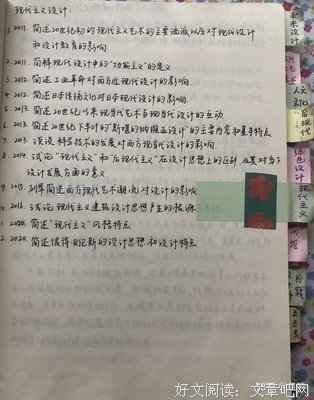 现代主义设计:
1. 2011. 简述20世纪初的现代主义艺术的主要流派以及对现代设计
和设计教育的影响.
2. 2011. 简释现代设计中的"功能主义"的定义
3. 2012. 简述工业革命对西方近现代设计的影响.
4. 2012. 简述日本传统文化对日本现代设计的影响.
5. 2013. 简述20世纪以来现当代艺术与现当代设计的互动
6. 2013. 简述20世纪下半叶的"斯堪的纳维亚设计"的主要内容和基本特点
7. 2013. 谈谈科学技术的发展对西方现当代设计的影响.
8. 2014. 试论"现代主义"和"后现代主义"在设计思想上的区别 及其对当下
设计发展方面的意义.
9. 2015. 列举简述西方现代艺术潮流对设计的影响
2016. 试论现代主义建筑设计思想产生的根源
2020. 简述"现代主义"风格特点
2. 2020. 简述彼得·贝伦斯的设计思想和设计特点
后现代
绿色设计
现代主义
问答
好文阅读：文章吧网